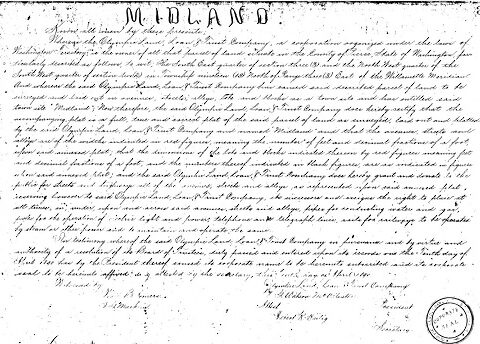 MIDLAND.
Know all men by these presents
Whereas the Olympic Land, Loan & Trust Company, a corporation organized under the laws of
Washington Territory, is the owner of all that parcel of land situate in the County of Pierce, State of Washington, par-
ticularly described as follows, to wit: The South East quarter of section three (3) and the North West quarter of the
South West quarter of section twelve in Township nineteen (19) North of Range three (3) East of the Willamette Meridian
And whereas the said Olympic Land, Loan & Trust Company has caused said described parcel of land to be
surveyed and laid out in avenues, streets, alleys, lots and blocks as a town site and has entitled said
town site "Midland". Now therefore, the said Olympic Land, Loan & Trust Company does hereby certify that the
accompanying plat is a full, true and correct plat of the said parcel of land as surveyed, laid out and platted
by the said Olympic Land, Loan & Trust Company and named "Midland" and that the avenues, streets and
alleys are of the widths indicated in red figures, meaning the number of feet and decimal fractions of a foot,
upon said annexed plat, that the dimensions of the lots and blocks indicated thereon by red figures meaning feet
and decimal fractions of a foot, and the numbers thereof indicated in black figures, are as indicated in figures
upon said annexed plat; and the said Olympic Land, Loan & Trust Company does hereby grant and donate to the
public for streets and highways all of the avenues, streets and alleys as represented upon said annexed plat,
reserving however to said Olympic Land, Loan & Trust Company, its successors and assigns the right to place at
all times, in, under, upon and across said avenues, streets and alleys, pipes for conducting water and gas,
poles for the operation of electric light and power, telephone and telegraph lines, and for railways to be operated
by steam or other power and to maintain and operate the same
In testimony whereof the said Olympic Land, Loan & Trust Company in pursuance and by virtue and
authority of a resolution of its Board of Trustees, duly passed and entered upon its records on the Tenth day of
April 1890 has by the President thereof caused its corporate name to be hereunto subscribed and its corporate
seal to be hereunto affixed & attested by the secretary, this day of April 1890
Olympic Land, Loan & Trust Company
President
Attest
Secretary
CORPORATE
SEAL